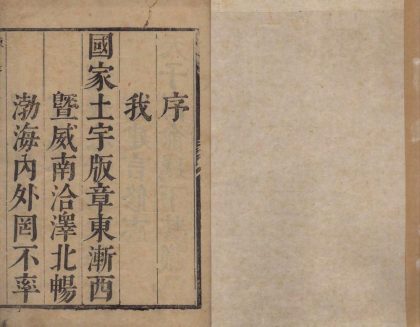 序
我
國家土宇版章東漸西
暨威南洽澤北暢
渤海內外罔不率